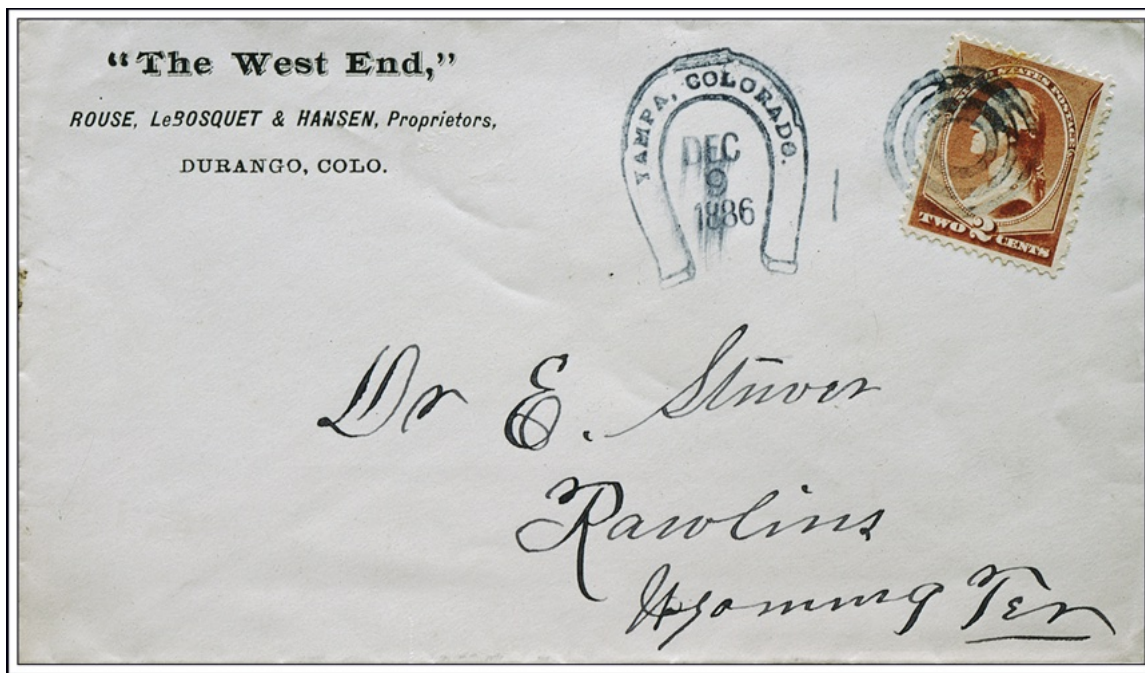 "The West End,"
ROUSE, LeBOSQUET & HANSEN, Proprietors,
DURANGO, COLO.
YAMPA, COLORADO.
DEC
9
1886
UNITED STATES POSTAGE
TWO 2 CENTS
Dr E. Stuver
Rawlins
Wyoming Ter